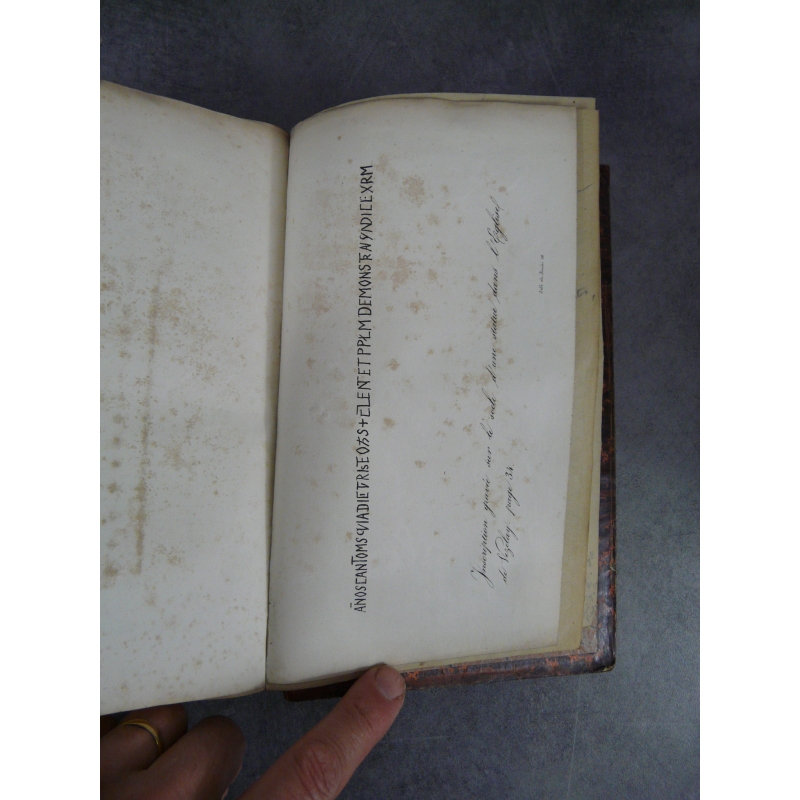 AÑOSCANTOMS QVIADIETRISTEOTSS + ELENETPPŁM DEMONSTRANSINDICEXRM
Inscription gravée sur le socle d'une statue dans l'Eglise
de Vezelay page 34